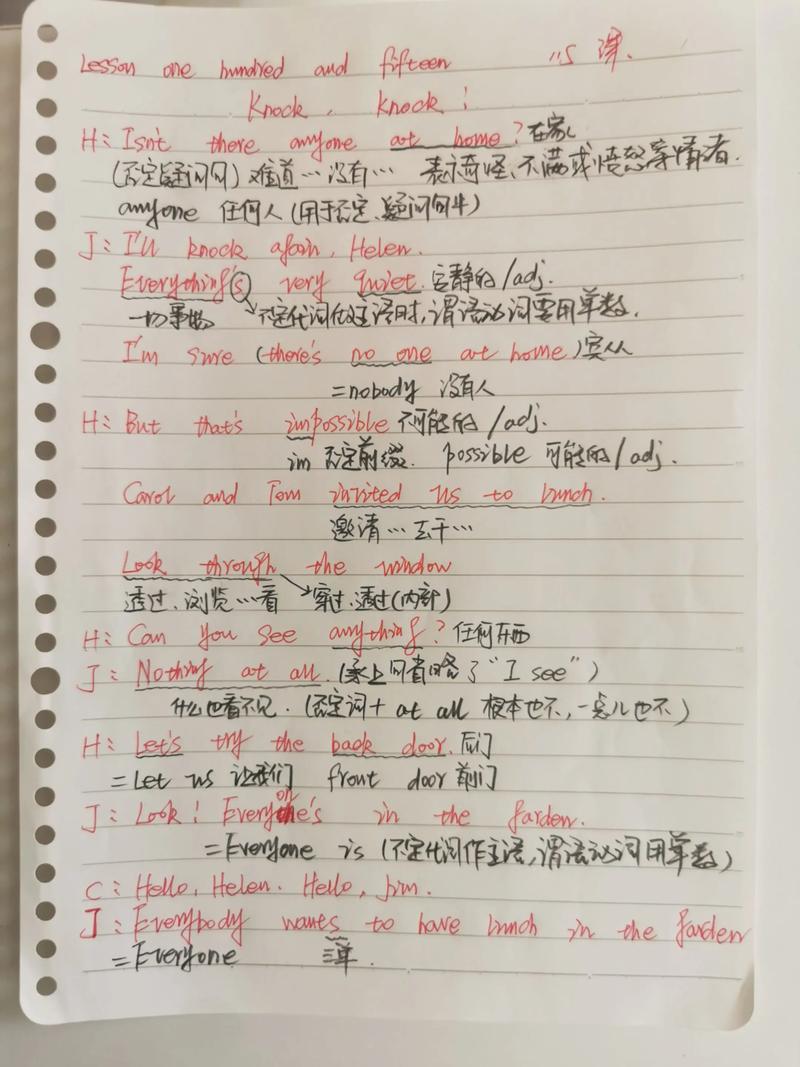 Lesson one hundred and fifteen 115 课.
Knock, knock!
H: Isn't there anyone at home? 在家
(否定疑问句) 难道…没有… 表示奇怪、不满或愤怒等情绪.
anyone 任何人 (用于否定、疑问句中)
J: I'll knock again, Helen.
Everything's very quiet. 安静的/adj.
一切事物 不定代词做主语时,谓语动词要用单数.
I'm sure (there's no one at home) 宾从
=nobody 没有人
H: But that's impossible 不可能的/adj.
im 否定前缀. possible 可能的/adj.
Carol and Tom invited us to lunch.
邀请…去干…
Look through the window
透过.浏览…看 穿过.透过(内部)
H: Can you see anything? 任何东西
J: Nothing at all. (承上句省略了"I see")
什么也看不见. (否定词+ at all 根本也不,一点儿也不)
H: Let's try the back door. 后门
=Let us 让我们 front door 前门
J: Look! Everyone's in the garden.
=Everyone is (不定代词作主语,谓语动词用单数)
C: Hello, Helen. Hello, Jim.
J: Everybody wants to have lunch in the garden
=Everyone 三单.